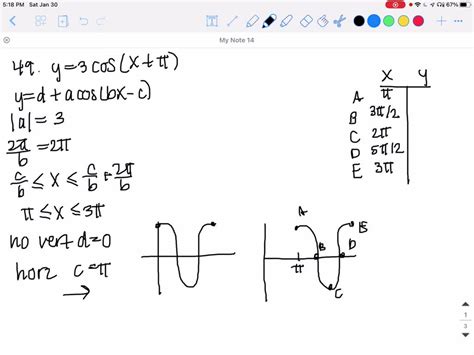 5:18 PM Sat Jan 30
67%
My Note 14
49. y=3cos(x+π)
y=d+acos(bx-c)
|a|=3
2π/b=2π
c/b ≤ x ≤ c/b + 2π/b
π ≤ x ≤ 3π
no vert d=0
horz c=π
→
X Y
A π
B 3π/2
C 2π
D 5π/2
E 3π
A
B
C
D
E
π
1
3